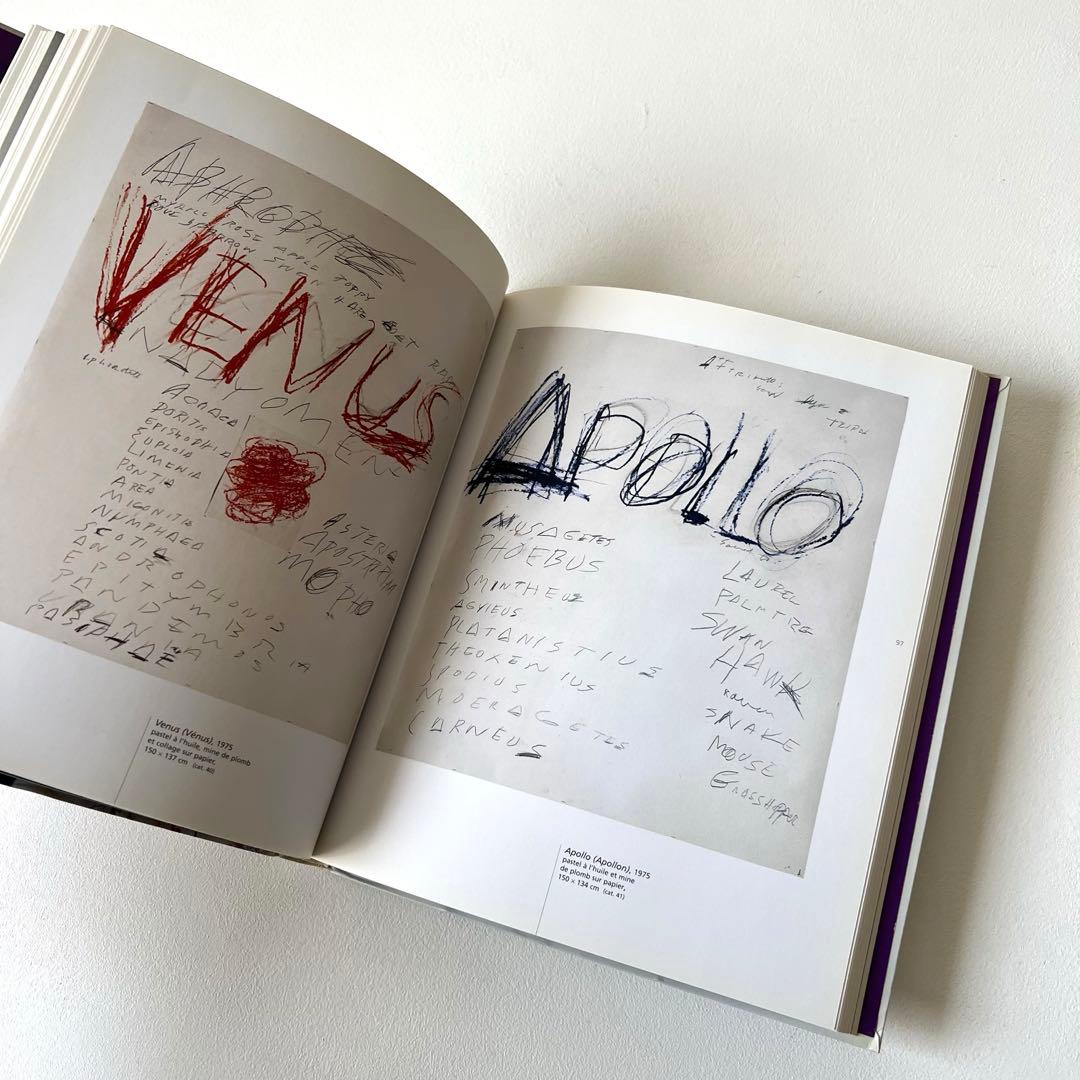 APHRODITE
MYRTLE ROSE APPLE POPPY
DOVE SPARROW SWAN HARE GOAT RAM
VENUS
ANADYOMENE
ACRAEA
DORITIS
EPISTROPHIA
EUPLOIA
LIMENIA
PONTIA
AREA
MIGONITIS
NYMPHAEA
SCOTIA
ANDROPHONOS
EPITYMBRIA
PANDEMOS
URANIA
PASIPHAE
ASTERIA
APOSTROPHIA
MORPHO
Venus (Vénus), 1975
pastel à l'huile, mine de plomb
et collage sur papier,
150 × 137 cm (cat. 40)
TRIPOD
APOLLO
MUSAGETES
PHOEBUS
SMINTHEUS
AGYIEUS
PLATANISTIUS
THEOXENIUS
SPODIUS
MOERAGETES
CARNEUS
LAUREL
PALM TREE
SWAN
HAWK
Raven
SNAKE
MOUSE
GRASSHOPPER
97
Apollo (Apollon), 1975
pastel à l'huile et mine
de plomb sur papier,
150 × 134 cm (cat. 41)